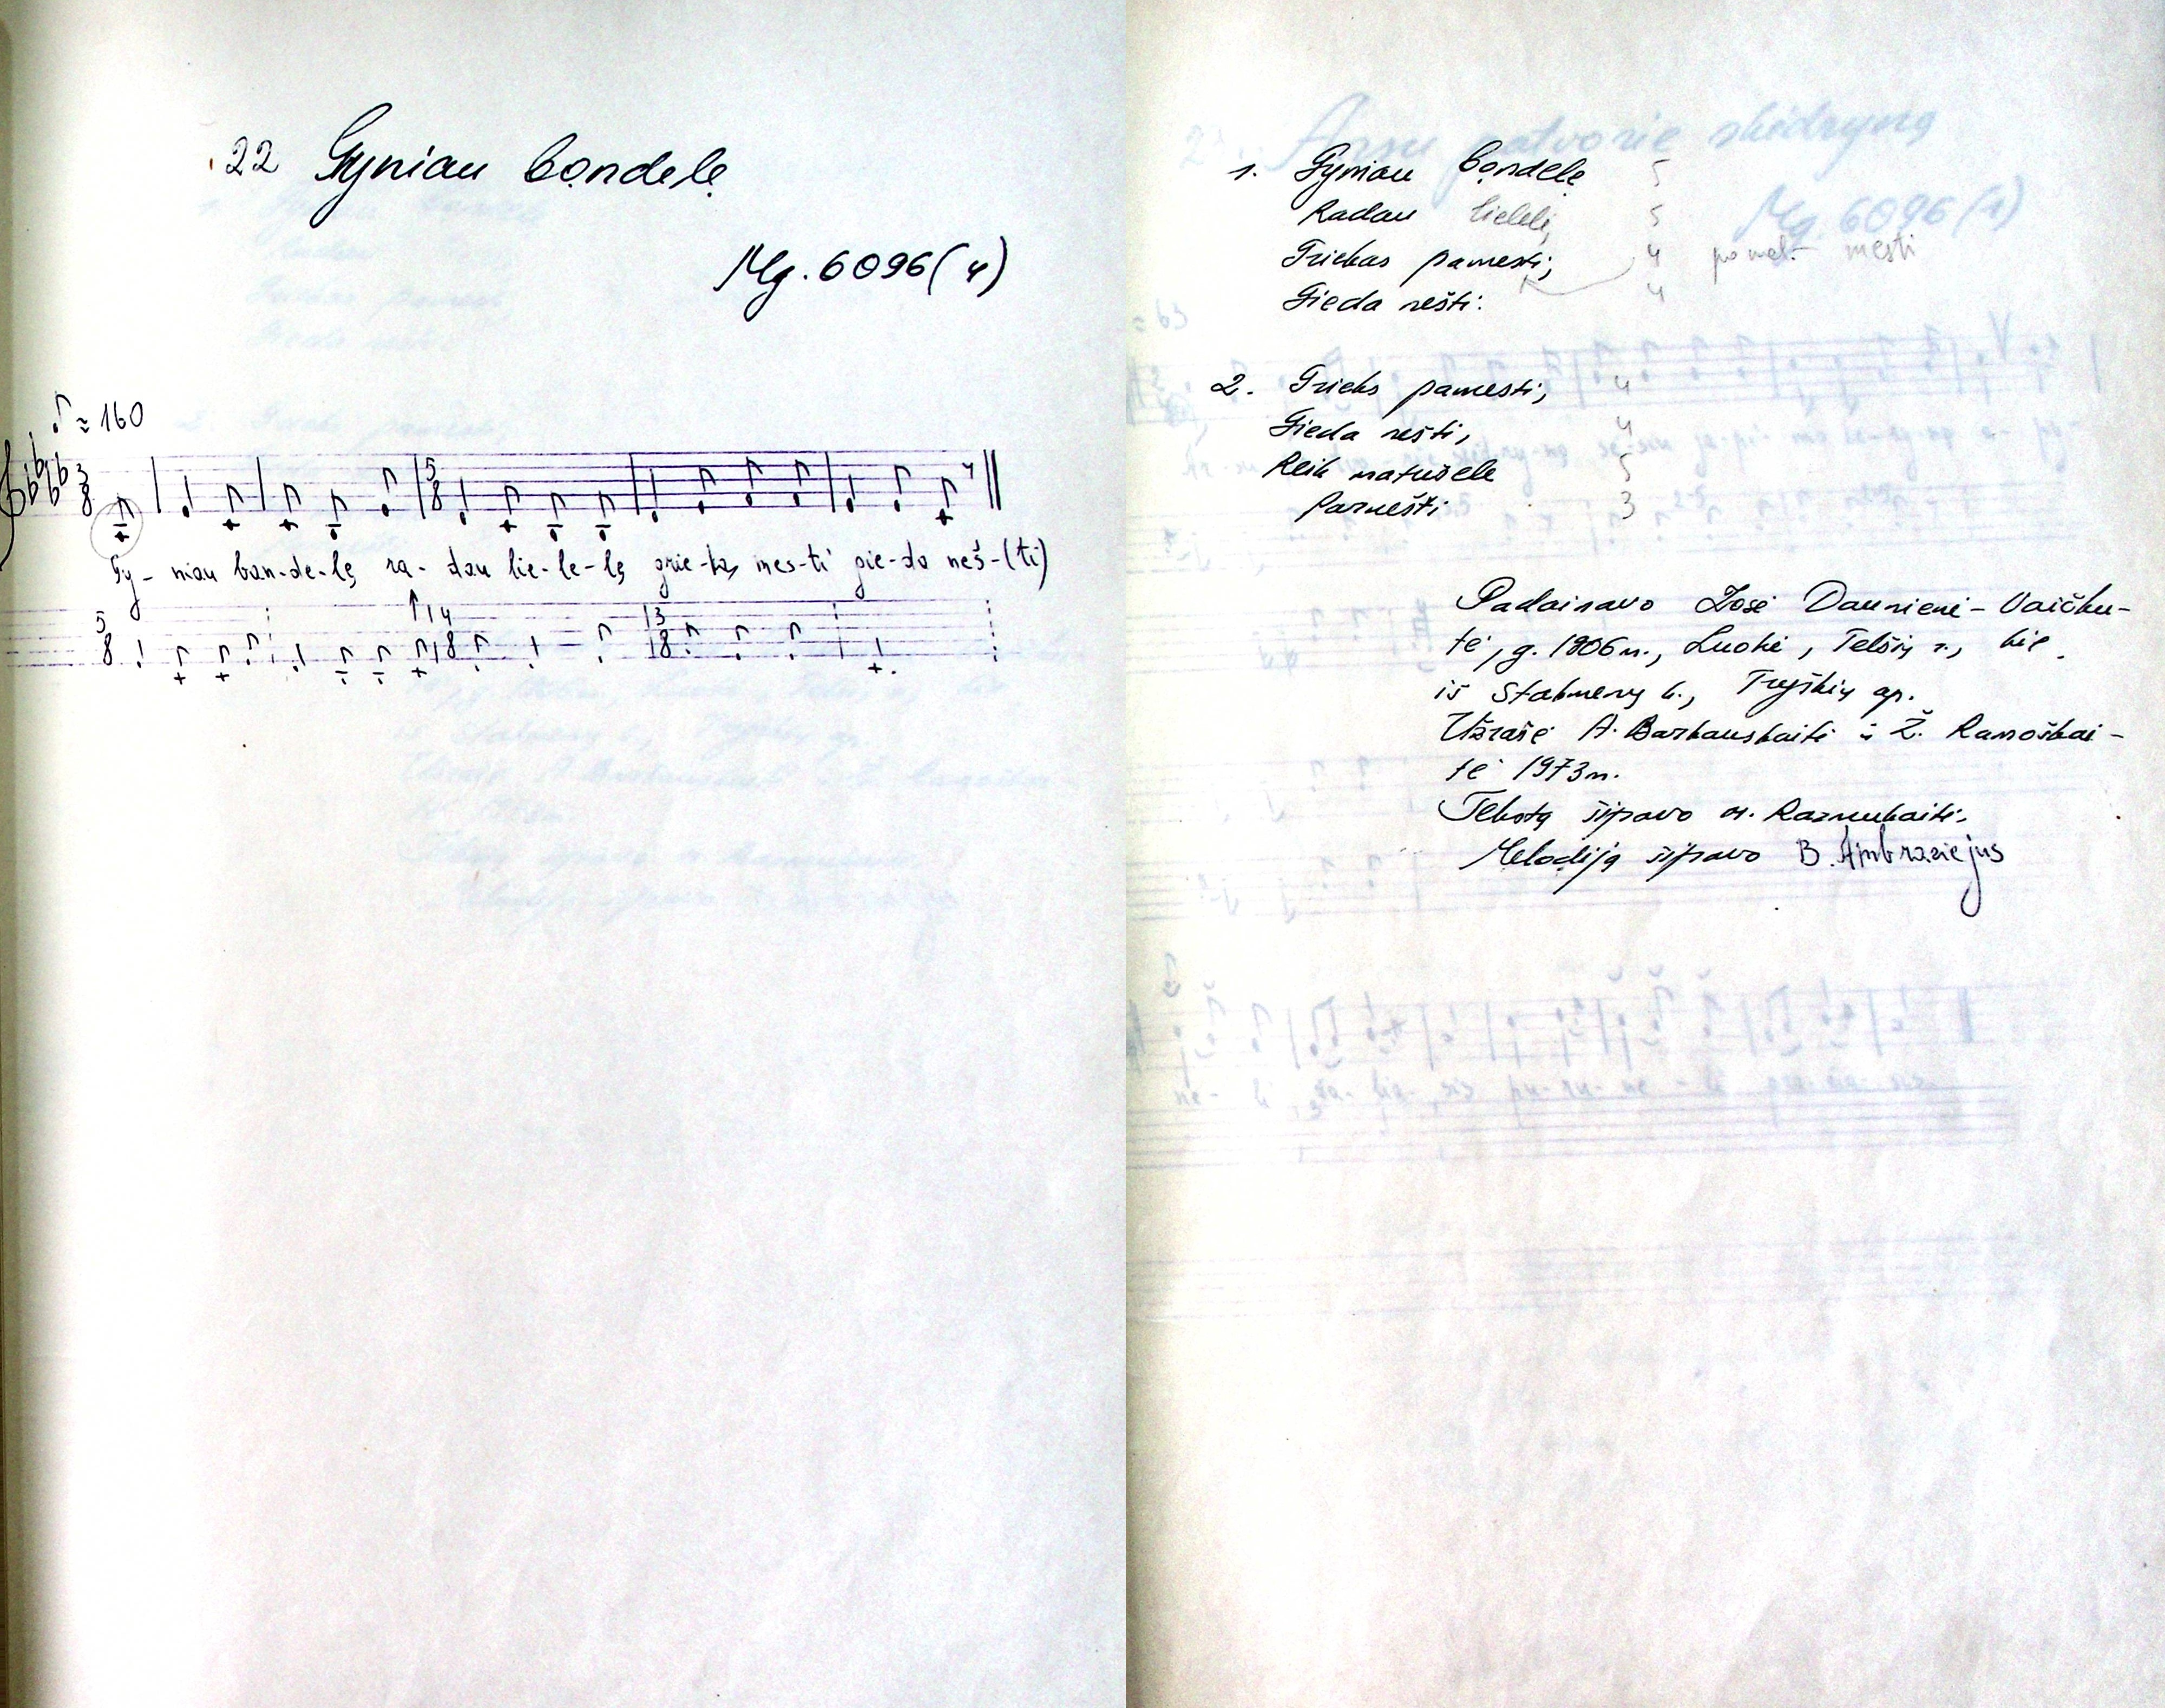 22 Gyniau bandelę
Mg. 6096(4)
♪ ≈ 160
Gy- niau ban-de-lę ra- dau lie-le-lę grie-ka mes-ti gie-da neš-(ti)
1. Gyniau bandelę 5
Radau lielelę, 5
Griekas pamesti, 4 mesti
Gieda nešti. 4
2. Grieks pamesti, 4
Gieda nešti, 4
Reik matušele 5
Parnešti 3
Padainavo Zosė Daunienė-Vaičku-
tė, g. 1906 m., Luokė, Telšių r., kie
iš Stalmenų k., Tryškių ap.
Užrašė A. Barkauskaitė ir Ž. Ramoškai-
tė 1973 m.
Tekstą šifravo Razmukaitė.
Melodiją šifravo B. Ambraziejus